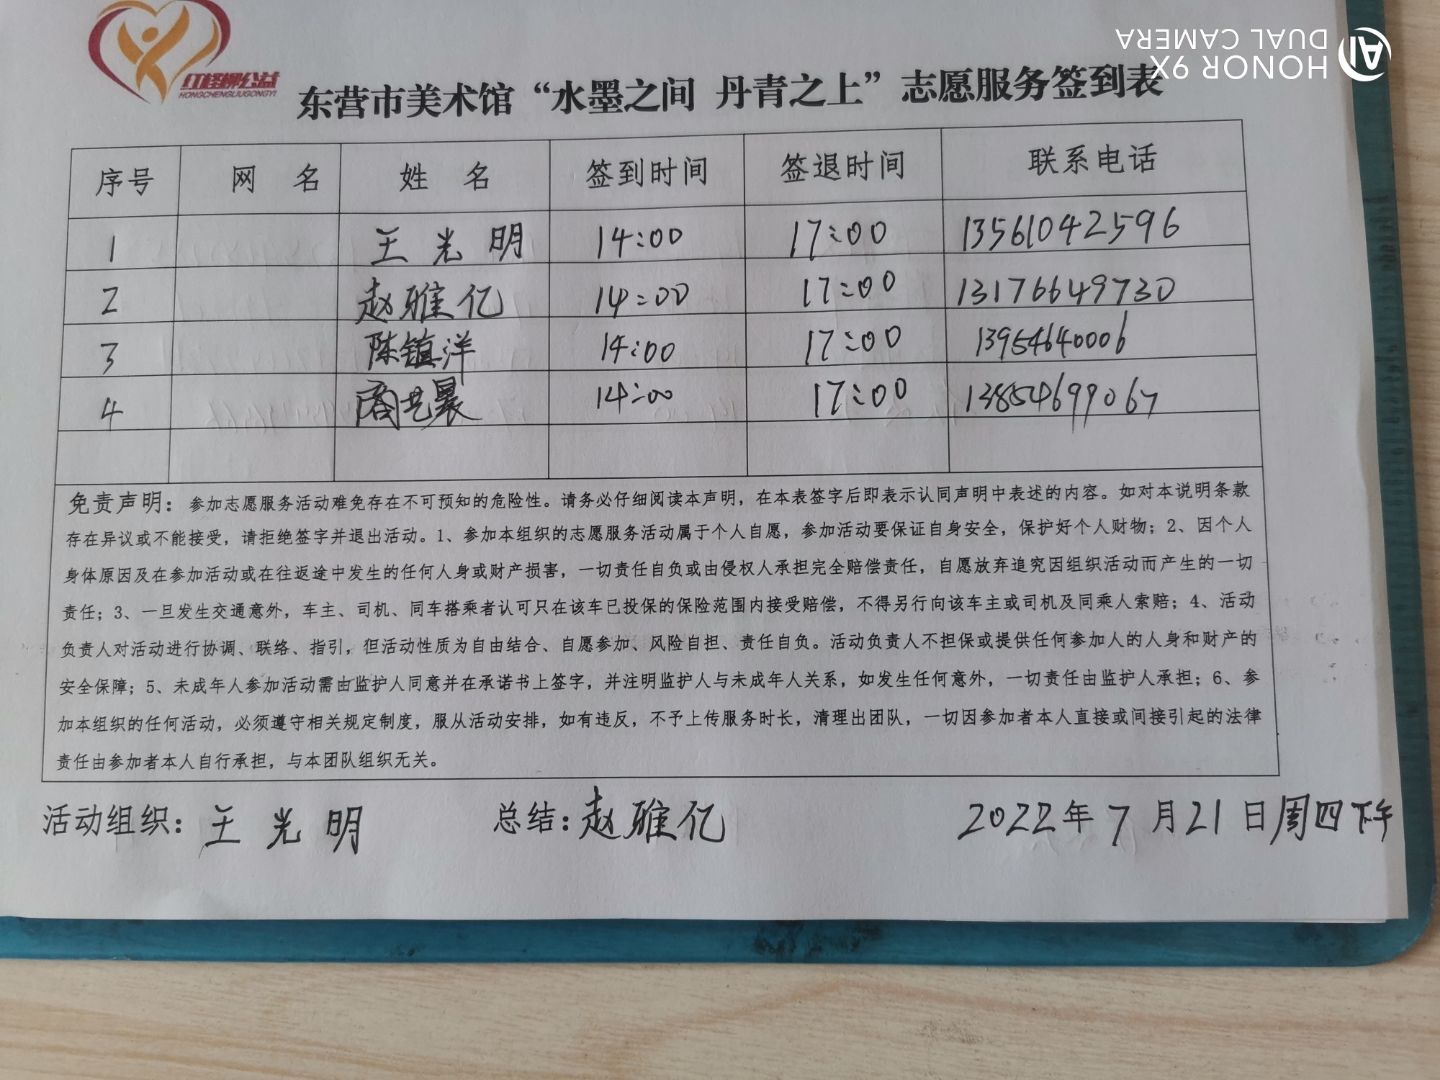 HONOR 9X
DUAL CAMERA
AI
红柽柳公益
HONGCHENGLIUGONGYI
东营市美术馆“水墨之间 丹青之上”志愿服务签到表
序号 网 名 姓 名 签到时间 签退时间 联系电话
1 王光明 14:00 17:00 13561042596
2 赵雅亿 14:00 17:00 13176649730
3 陈镇洋 14:00 17:00 13954640006
4 商艺晨 14:00 17:00 13854699067
免责声明：参加志愿服务活动难免存在不可预知的危险性。请务必仔细阅读本声明，在本表签字后即表示认同声明中表述的内容。如对本说明条款
存在异议或不能接受，请拒绝签字并退出活动。1、参加本组织的志愿服务活动属于个人自愿，参加活动要保证自身安全，保护好个人财物；2、因个人
身体原因及在参加活动或在往返途中发生的任何人身或财产损害，一切责任自负或由侵权人承担完全赔偿责任，自愿放弃追究因组织活动而产生的一切
责任；3、一旦发生交通意外，车主、司机、同车搭乘者认可只在该车已投保的保险范围内接受赔偿，不得另行向该车主或司机及同乘人索赔；4、活动
负责人对活动进行协调、联络、指引，但活动性质为自由结合、自愿参加、风险自担、责任自负。活动负责人不担保或提供任何参加人的人身和财产的
安全保障；5、未成年人参加活动需由监护人同意并在承诺书上签字，并注明监护人与未成年人关系，如发生任何意外，一切责任由监护人承担；6、参
加本组织的任何活动，必须遵守相关规定制度，服从活动安排，如有违反，不予上传服务时长，清理出团队，一切因参加者本人直接或间接引起的法律
责任由参加者本人自行承担，与本团队组织无关。
活动组织：王光明 总结：赵雅亿 2022年7月21日周四下午